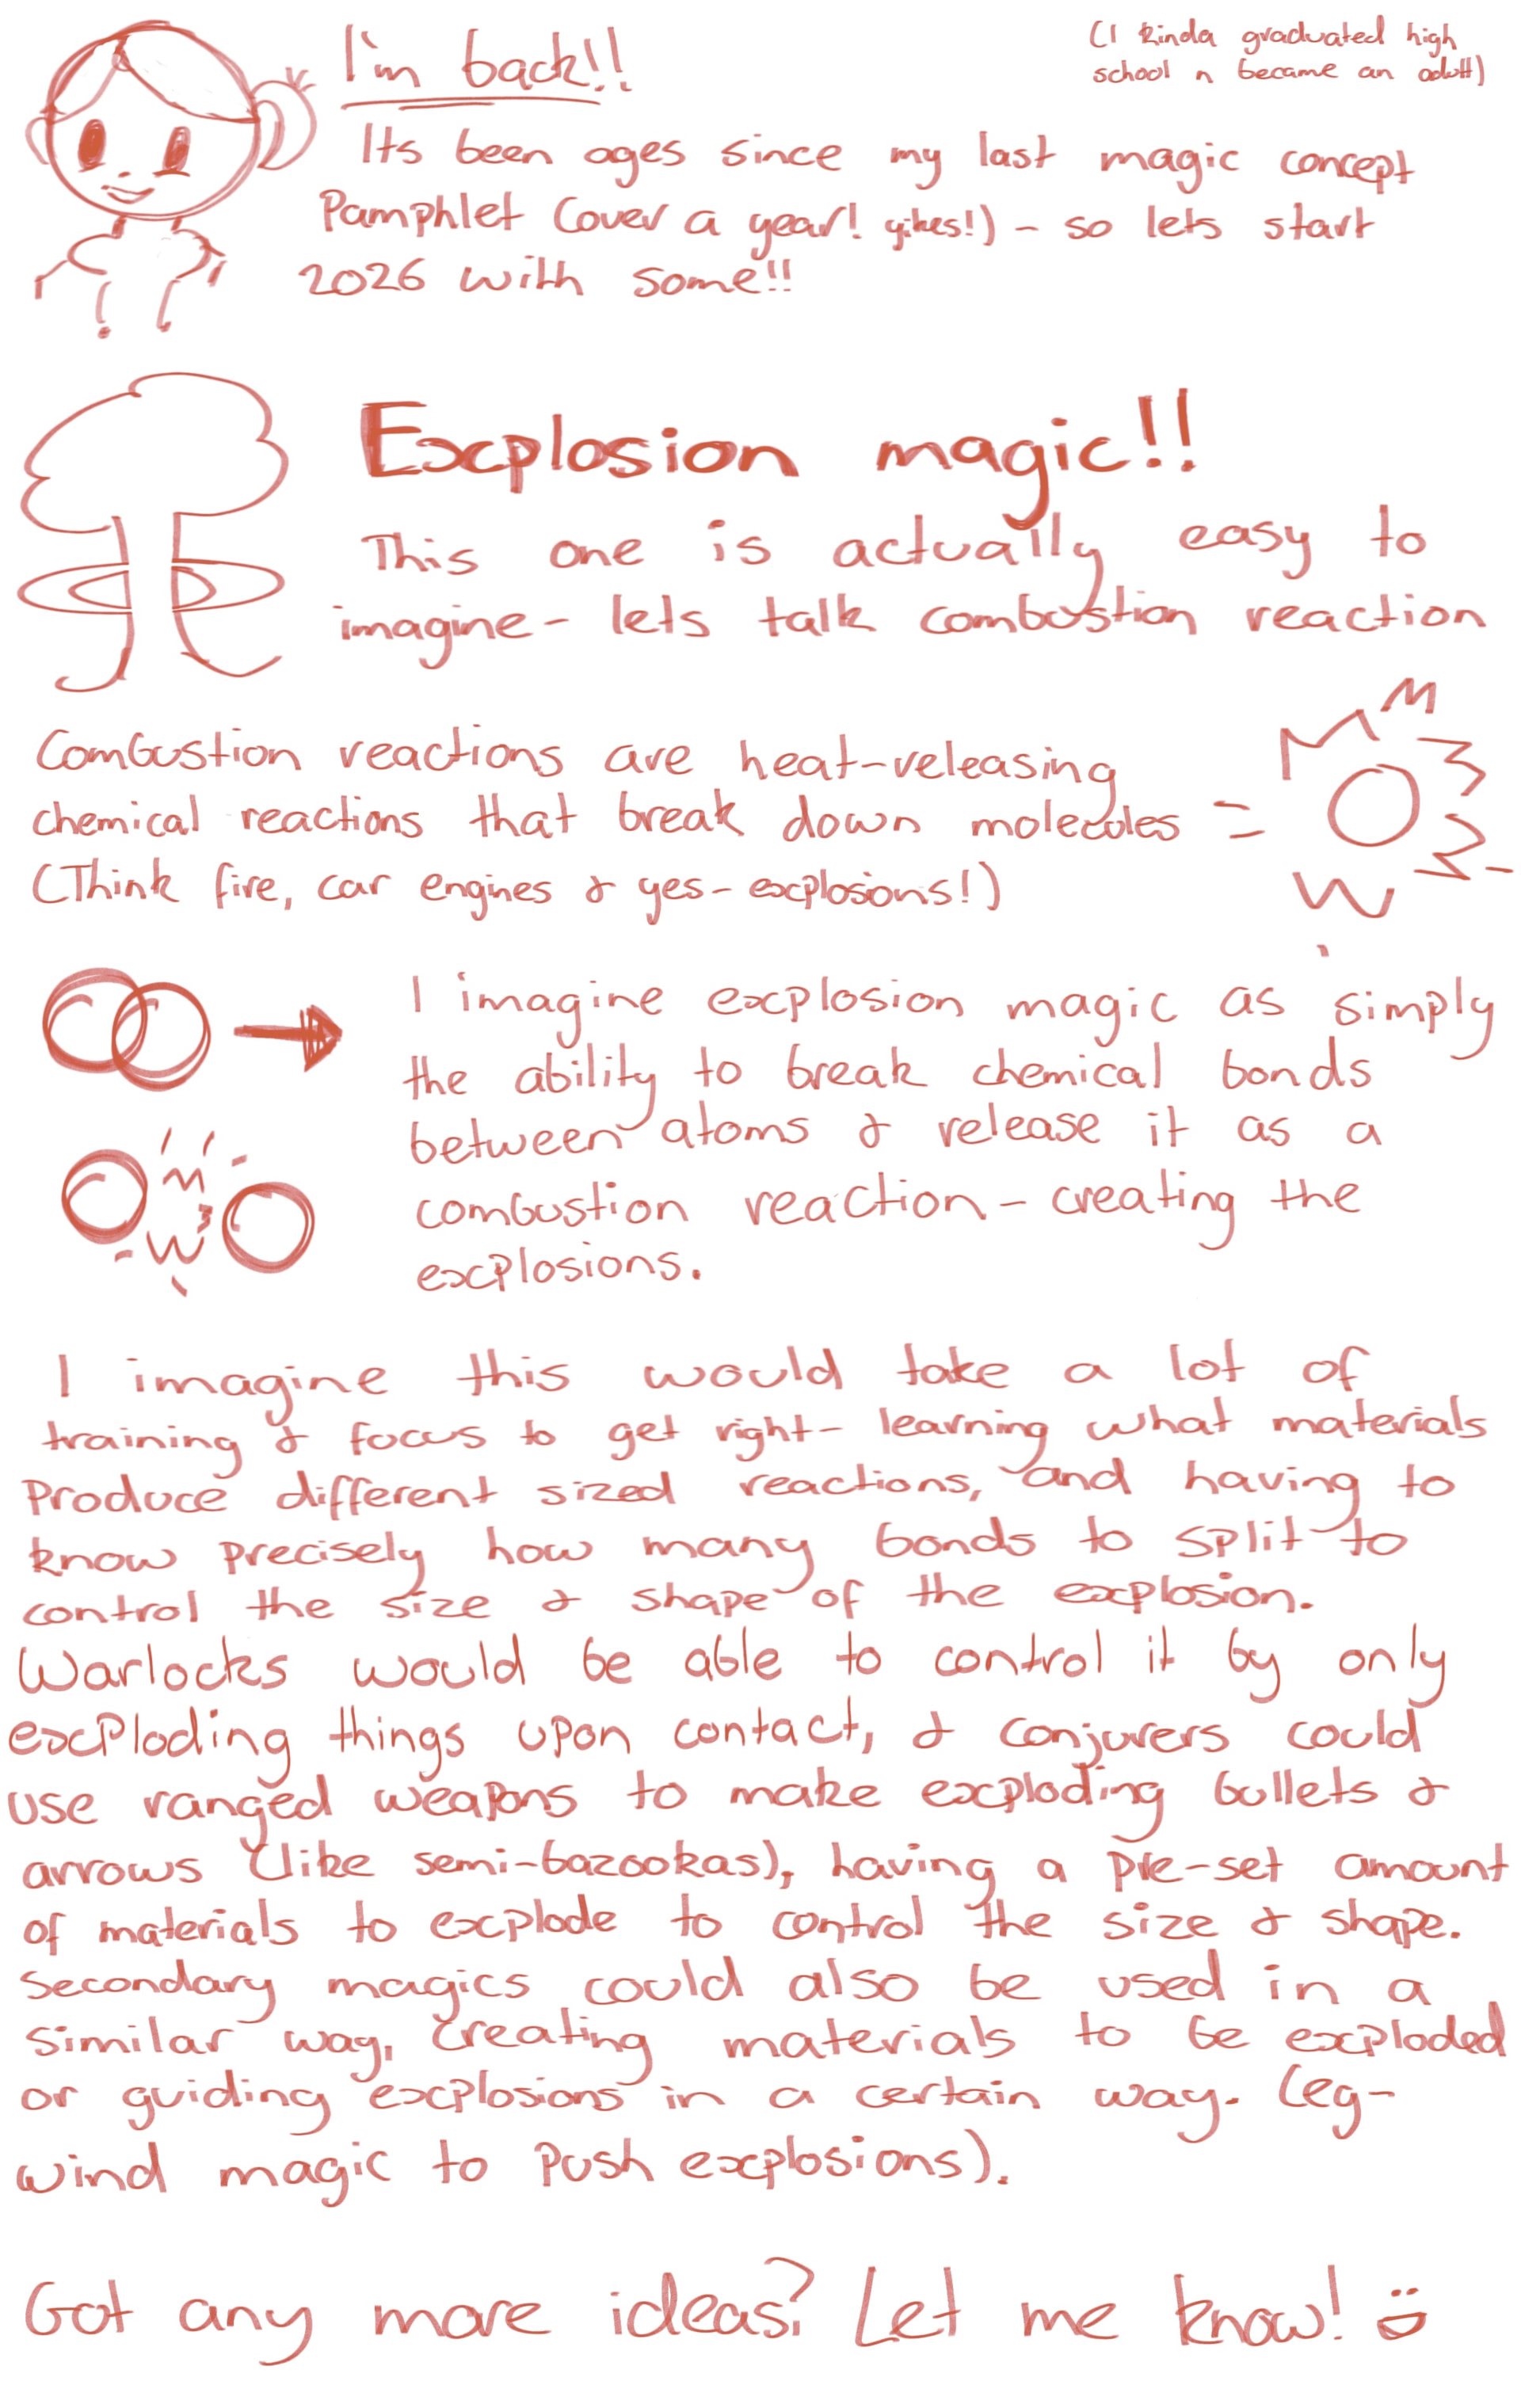 I'm back!!
(I kinda graduated high
school n became an adult)
Its been ages since my last magic concept
Pamphlet (over a year! yikes!) - so lets start
2026 with some!!
Explosion magic!!
This one is actually easy to
imagine - lets talk combustion reaction
Combustion reactions are heat-releasing
chemical reactions that break down molecules =
(Think fire, car engines & yes - explosions!)
I imagine explosion magic as simply
the ability to break chemical bonds
between atoms & release it as a
combustion reaction - creating the
explosions.
I imagine this would take a lot of
training & focus to get right - learning what materials
produce different sized reactions, and having to
know precisely how many bonds to split to
control the size & shape of the explosion.
Warlocks would be able to control it by only
exploding things upon contact, & conjurers could
use ranged weapons to make exploding bullets &
arrows (like semi-bazookas), having a pre-set amount
of materials to explode to control the size & shape.
Secondary magics could also be used in a
similar way, creating materials to be exploded
or guiding explosions in a certain way. (eg -
wind magic to push explosions).
Got any more ideas? Let me know! :D